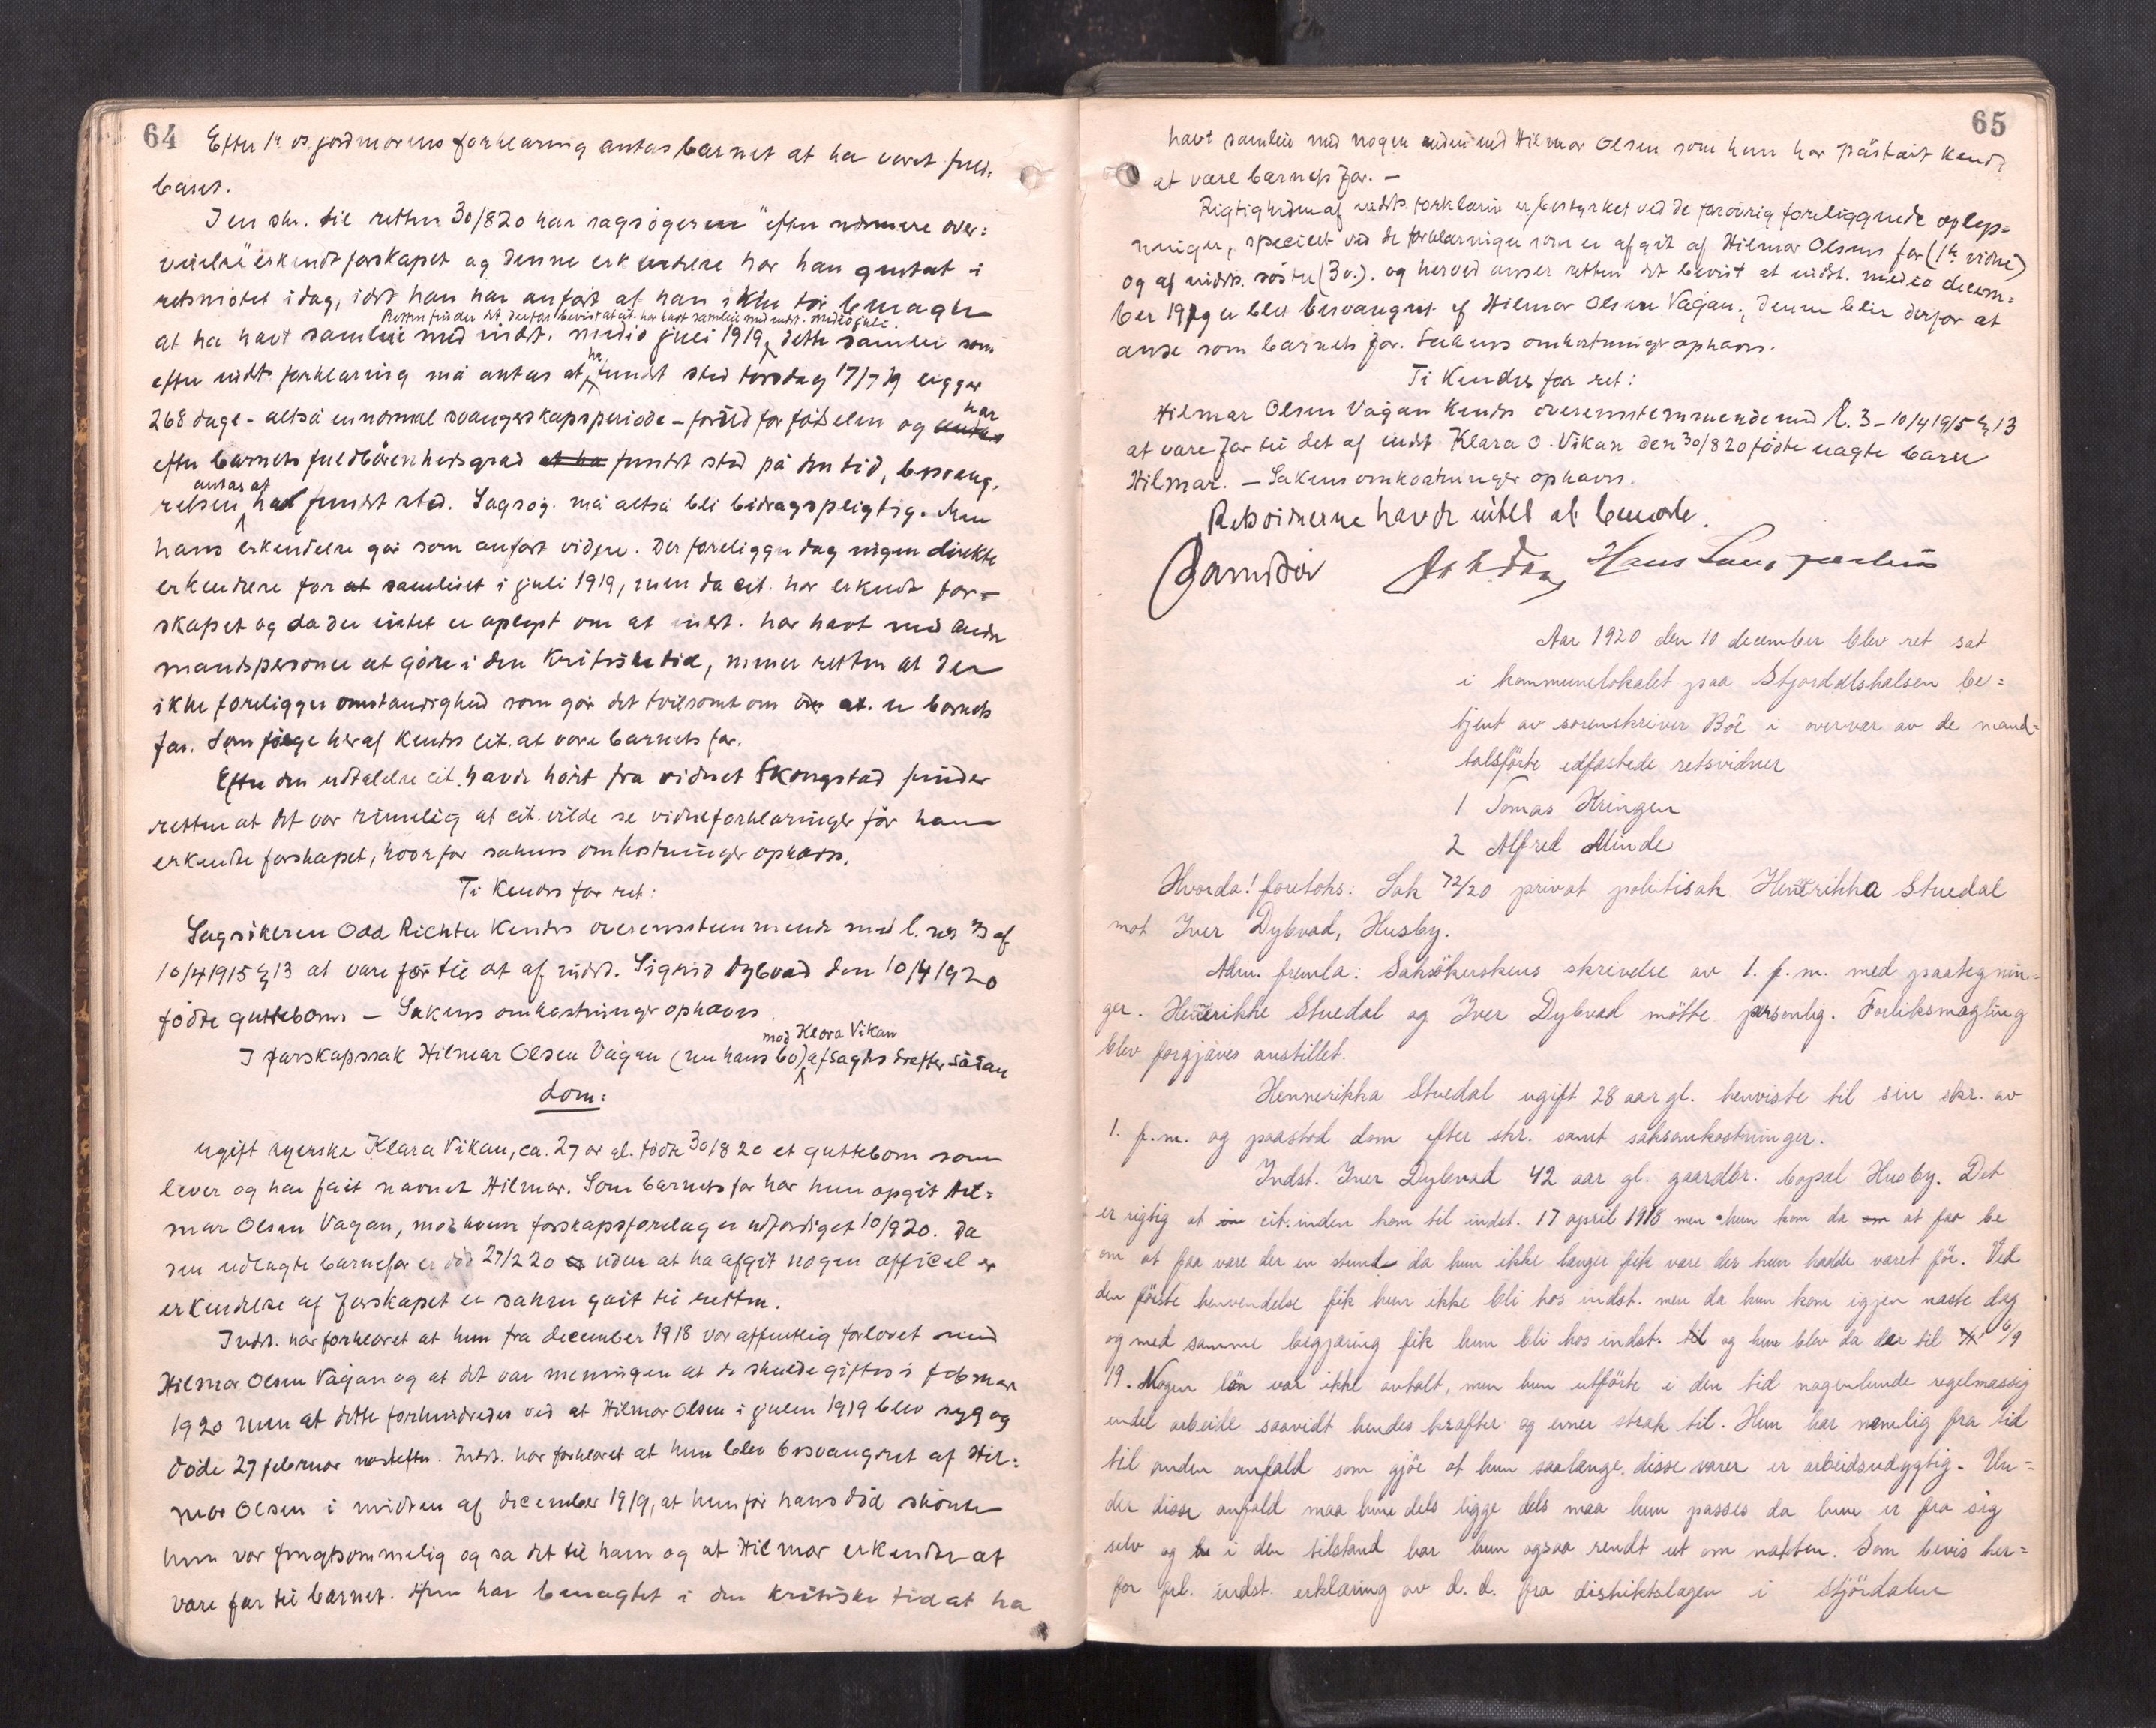 64
Efter 1ste vs. jordmorens forklaring antas barnet at ha været fuld-
baaret.
I en skr. til retten 30/8 20 har sagsøgeren "efter nærmere over-
veielse" erkendt farskapet og denne erkendelse har han gentat i
retsmötet idag, idet han har anført at han ikke tör benægte
Retten finder det derfor bevist at cit. har havt samleie med indst. medio juli.
at ha havt samleie med indst. medio juli 1919, dette samleie som
efter indst. forklaring må antas at ha fundet sted torsdag 17/7 19 ligger
268 dage - altså en normal svangerskapsperiode - forud for fødselen og har
efter barnets fuldbårenhedsgrad fundet sted på den tid, besvang-
relsen antas at ha fundet sted. Sagsøg. må altså bli bidragspligtig. Men
hans erkendelse går som anført videre. Der foreligger dog ingen direkte
erkendelse for samleiet i juli 1919, men da cit. har erkendt far-
skapet og da der intet er oplyst om at indst. har havt med andre
mandspersoner at göre i den kritiske tid, mener retten at der
ikke foreligger omstændighed som gör det tvilsomt om cit. er barnets
far. Som følge heraf kendes cit. at være barnets far.
Efter den udtalelse cit. havde hört fra vidnet Skongstad finder
retten at det var rimelig at cit. vilde se vidneforklaringer før han
erkendte farskapet, hvorfor sakens omkostninger ophæves.
Ti kendes for ret:
Sagsøkeren Odd Richter kendes overensstemmende med l. nr 3 af
10/4 1915 § 13 at være far til det af indst. Sigrid Dybvad den 10/4 1920
födte guttebarn. - Sakens omkostninger ophæves
I farskapssak Hilmar Olsen Vågan (nu hans bo) mod Klara Vikan afsagdes derefter sådan
dom:
Ugift syerske Klara Vikan, ca. 27 år gl. födte 30/8 20 et guttebarn som
lever og har fåit navnet Hilmar. Som barnets far har hun opgit Hil-
mar Olsen Vagan, mod hvem farskapsforelæg er udfærdiget 10/9 20. Da
den udlagte barnefar er död 27/2 20 uden at ha afgit nogen officiel
erkendelse af farskapet er saken gåit til retten.
Indst. har forklaret at hun fra december 1918 var offentlig forlovet med
Hilmar Olsen Vågan og at det var meningen at de skulde giftes i februar
1920 men at dette forhindredes ved at Hilmar Olsen i julen 1919 blev syg og
döde 27 februar næstefter. Indst. har forklaret at hun blev besvangret af Hil-
mar Olsen i midten af december 1919, at hun för hans död skjönte
hun var frugtsommelig og sa det til ham og at Hilmar erkendte at
være far til barnet. Hun har benægtet i den kritiske tid at ha
65
havt samleie med nogen anden end Hilmar Olsen som hun har påståit kendt
at være barnets far. -
Rigtigheden af indst. forklaring er bestyrket ved de forövrig foreliggende oplys-
ninger, specielt ved de forklaringer som er afgit af Hilmar Olsens far (1ste vidne)
og af indst. söster (3 v.). og herved anser retten det bevist at indst. medio decem-
ber 1919 er blet besvangret af Hilmar Olsen Vågan; denne blir derfor at
anse som barnets far. Sakens omkostninger ophæves.
Ti kendes for ret:
Hilmar Olsen Vågan kendes overensstemmende med l. 3 - 10/4 1915 § 13
at være far til det af indst. Klara O. Vikan den 30/8 20 födte uægte barn
Hilmar. - Sakens omkostninger ophæves.
Retsvidnerne havde intet at bemerke.
Aar 1920 den 10 december blev ret sat
i kommunelokalet paa Stjørdalshalsen be-
tjent av sorenskriver Böe i overvær av de mand-
talsförte edfæstede retsvidner
1 Tomas Kringen
2 Alfred Minde
Hvorda! foretoks: Sak 72/20 privat politisak Hennrikka Stuedal
mot Iver Dybvad, Husby.
Adm. fremla: Saksökerskens skrivelse av 1. f.m. med paategnin-
ger. Hennerikke Stuedal og Iver Dybvad mötte personlig. Forliksmægling
blev forgjæves anstillet.
Hennerikka Stuedal ugift 28 aar gl. henviste til sin skr. av
1. f.m. og paastod dom efter skr. samt saksomkostninger.
Indst. Iver Dybvad 42 aar gl. gaardbr. bopæl Husby. Det
er rigtig at cit.inden kom til indst. 17 april 1918 men hun kom da at faa be
om at faa være der en stund da hun ikke længer fik være der hun hadde været för. Ved
den förste henvendelse fik hun ikke bli hos indst. men da hun kom igjen næste dag
og med samme begjæring fik hun bli hos indst. og hun blev da der til 6/9
19. Nogen lön var ikke avtalt, men hun utförte i den tid nogenlunde regelmæssig
endel arbeide saavidt hendes kræfter og evner strak til. Hun har nemlig fra tid
til anden anfald som gjör at hun saalænge disse varer er arbeidsudygtig. Un-
der disse anfald maa hun dels ligge dels maa hun passes da hun er fra sig
selv og i den tilstand har hun ogsaa rendt ut om natten. Som bevis her-
for frl. indst. erklæring av d. d. fra distriktslægen i Stjördalen